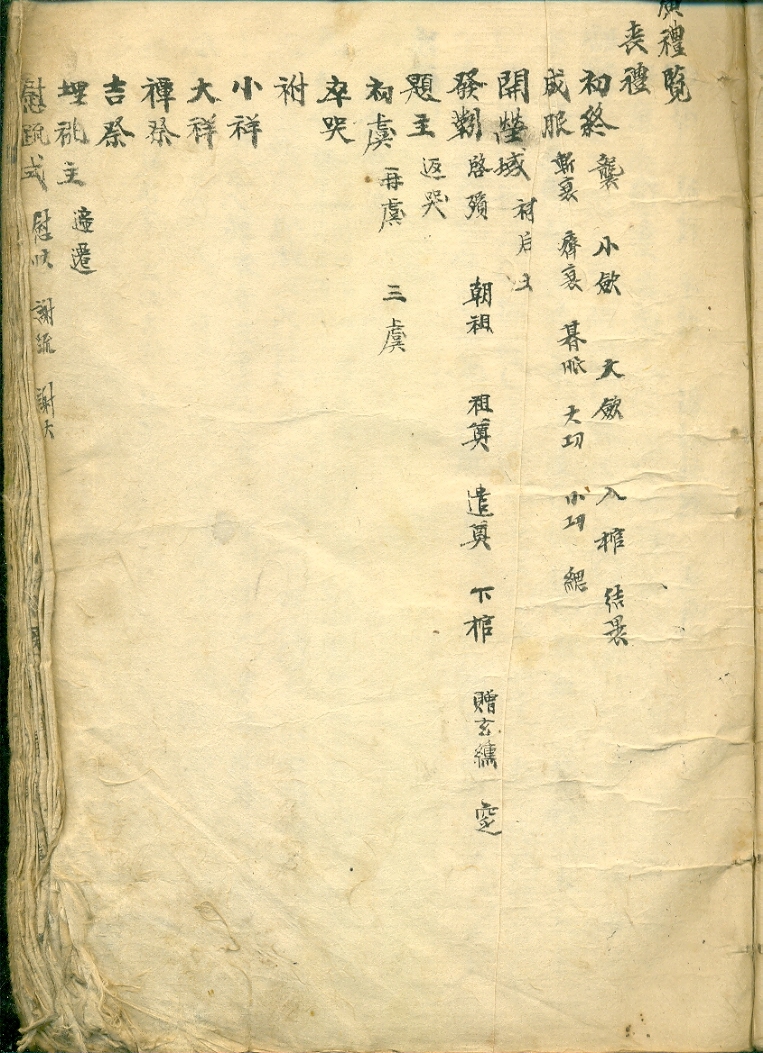 廣禮覽
喪禮
初終 襲 小斂 大斂 入棺 結裹
成服 斬衰 齊衰 朞服 大功 小功 緦
開塋域 祠后土
發靷 啓殯 朝祖 祖奠 遣奠 下棺 贈玄纁 窆
題主 返哭
初虞 再虞 三虞
卒哭
祔
小祥
大祥
禫祭
吉祭
埋祧主 遞遷
慰疏式 慰狀 謝疏 謝